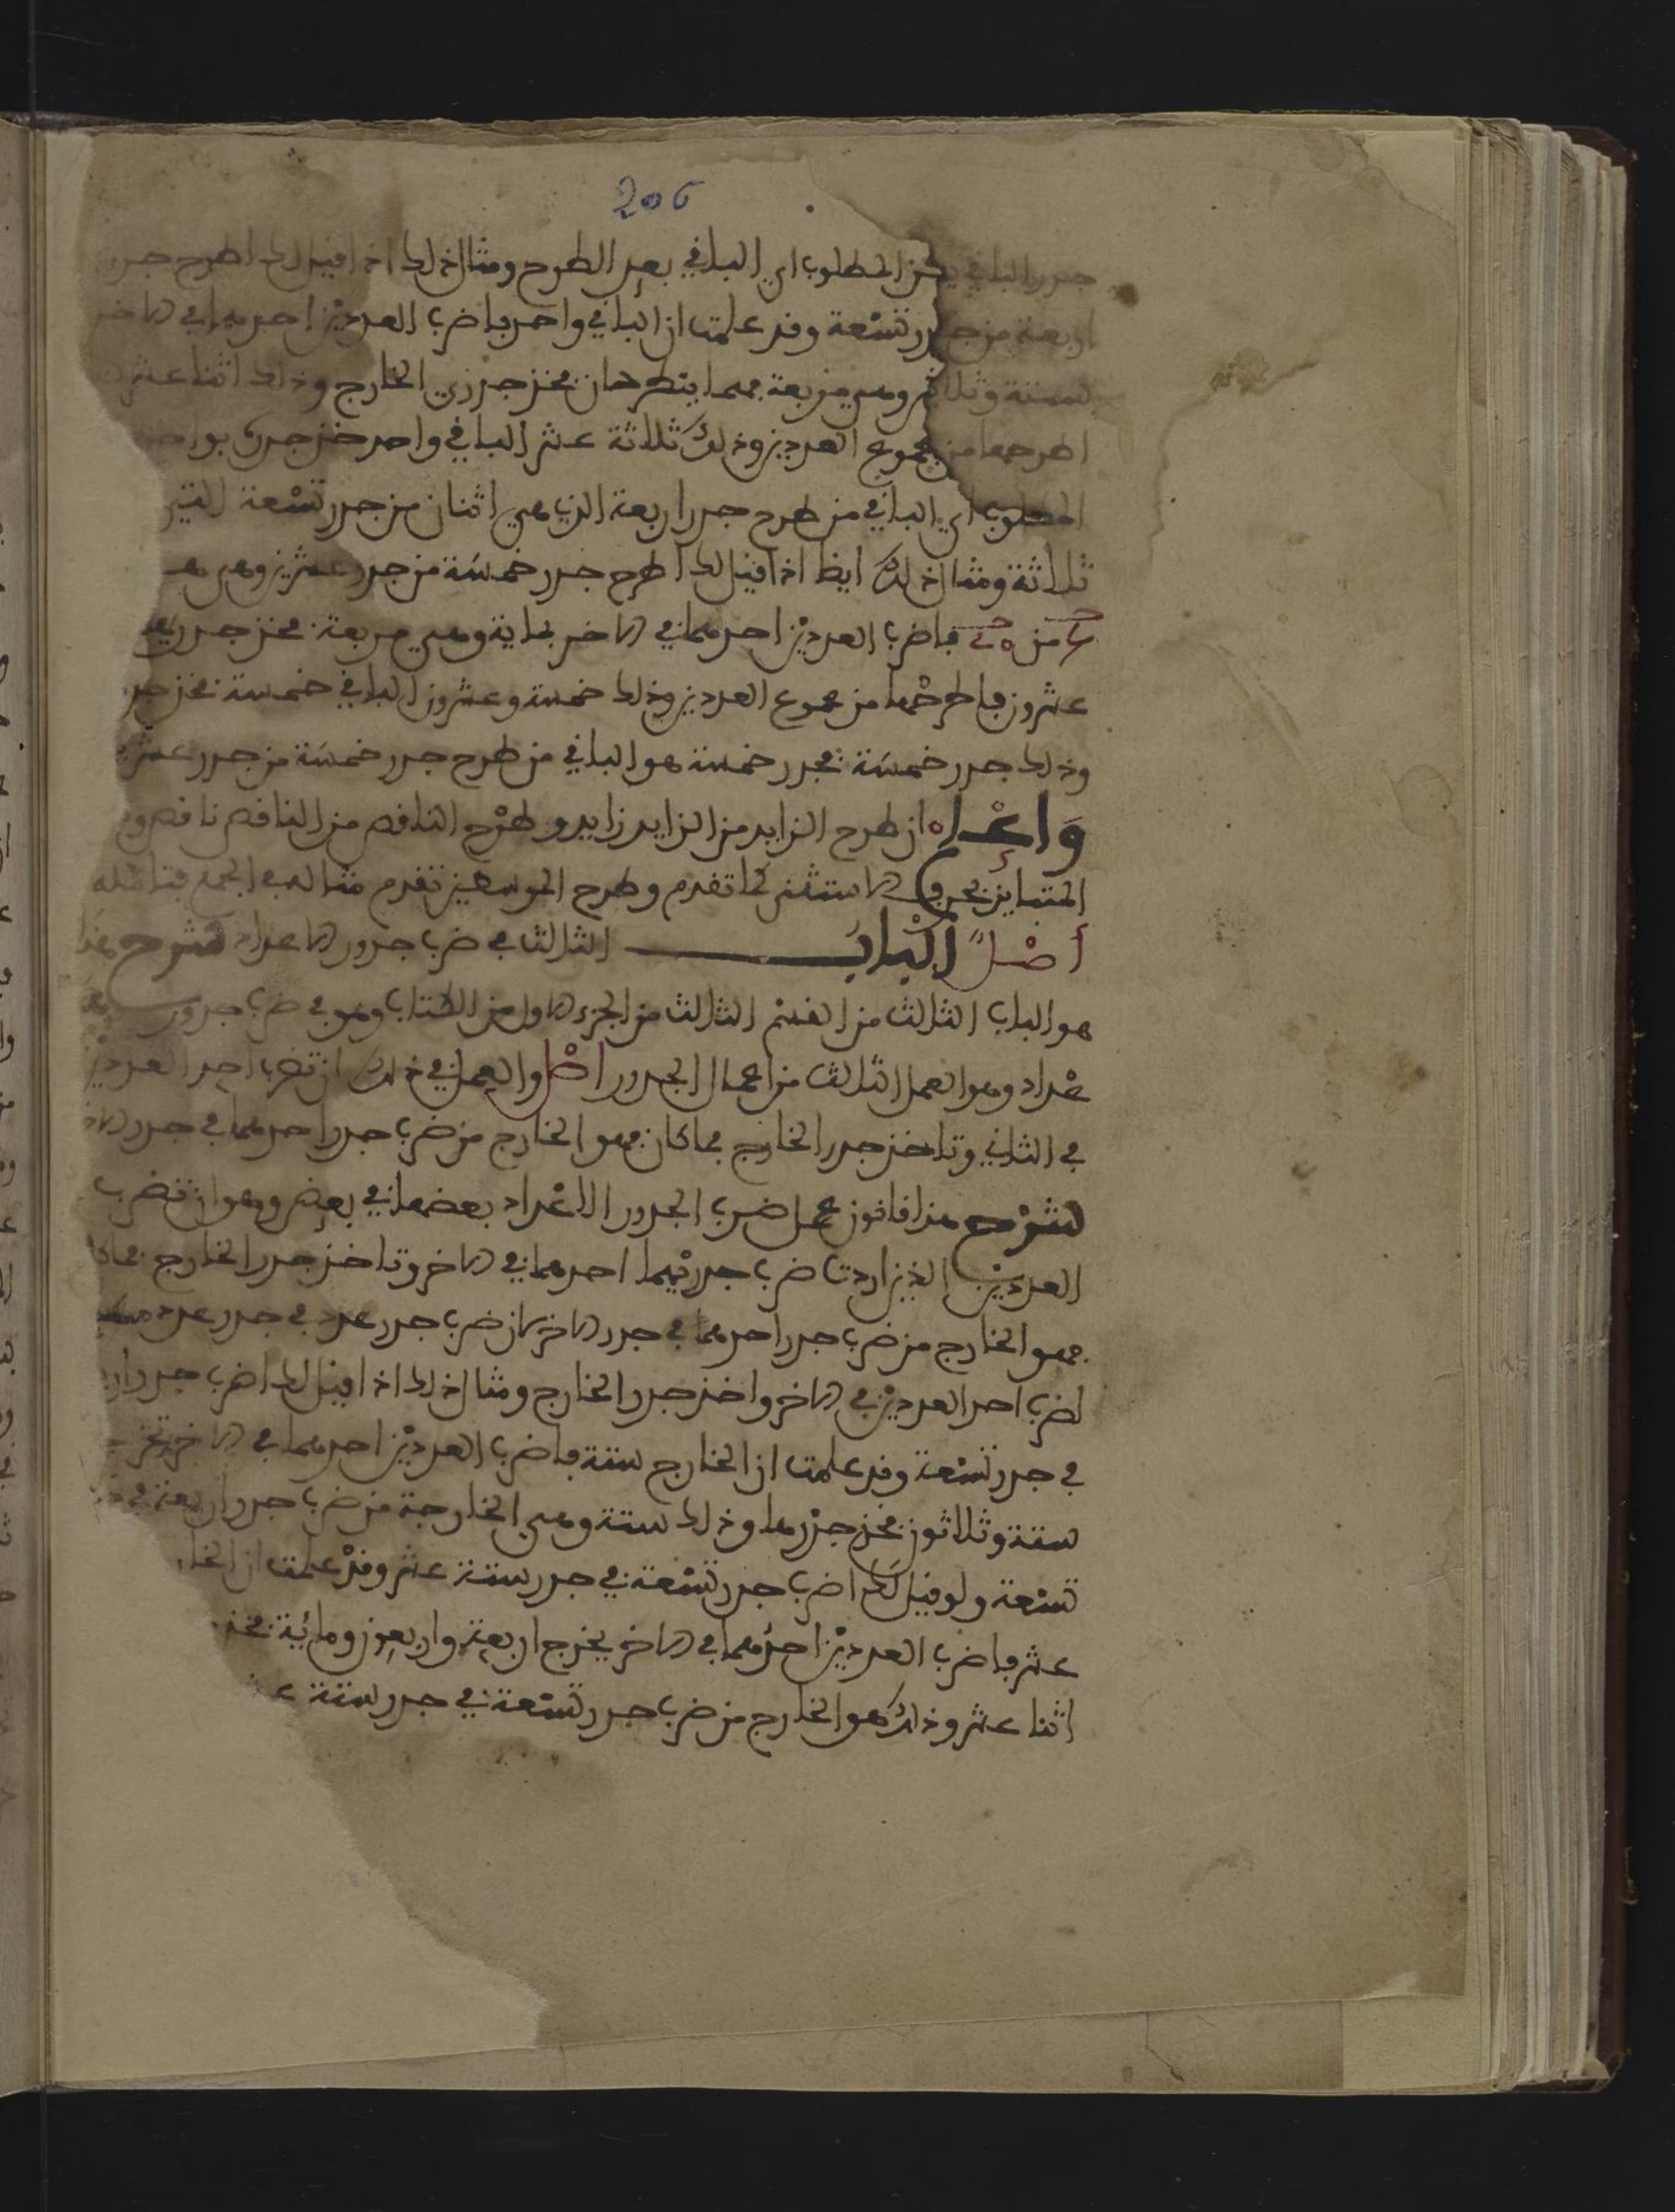 206
جدر الباقي يكن المطلوب اي الباقي بعد الطرح ومثال ذلك اذا قيل لك اطرح جدر
اربعة من جدر تسْعة وقد علمت ان الباقي واحد فاضرب العدديْن احدهما في الاخر
ستة وثلاثـ وهي مربعة فهما ينطرحان فخذ جذري الخارج وذلك اثنا عشر
اطرحها من مجموع العددين وذلك ثلاثة عشر الباقي واحد خذ جدره بواحد
المطلوب اي الباقي من طرح جدر اربعة الذي هي اثنان من جدر تسْعة التي
ثلاثة ومثال ذلك ايظا اذا قيل لك اطرح جدر خمسَة من جدر عشرين وهي
من فاضرب العدديْن احدهما في الاخر بماية وهي مربعة فخذ جدريها
عشرون فاطرحْها من مجموع العددين وذلك خمسة وعشرون الباقي خمسة فخذ جدر
وذلك جدر خمسَة فجدر خمسة هو الباقي من طرح جدر خمسَة من جدر عشر
وَاعْلم ان طرح الزايد من الزايد زايد وطرْح الناقص من الناقص ناقص و
المتباين بحرف الاستثنى كما تقدم وطرح الموسطين تقدم مثاله في الجمع فتامله
أصْلٌ الْبابُ الثالث في ضرب جدور الاعداد شرح هذا
هو الباب الثالث من القسْم الثالث من الجزء الاول من الكتاب وهو في ضرب جدور
عْداد وهو العمل الثالث من اعمال الجدور اصْل والعمل في ذلك ان تضرب احد العدديْن
في الثاني وتاخذ جدر الخارج فما كان فهو الخارج من ضرب جدر احدهما في جدر الاخر
شرْح هذا قانون عمل ضرب الجدور الاعْداد بعضها في بعض وهو ان تضرب
العدديْن الذين اردت ضرب جدريْهما احدهما في الاخر وتاخذ جدر الخارج فما كا
فهو الخارج من ضرب جدر احدهما في جدر الاخر لان ضرب جدر عدد في جدر عدد
لضرب احد العدديْن في الاخر واخذ جدر الخارج ومثال ذلك اذا قيل لك اضرب جدر ار
في جدر تسْعة وقد علمت ان الخارج ستة فاضرب العدديْن احدهما في الاخر تخرج
ستة وثلاثون فخذ جدْرها وذلك ستة وهي الخارجة من ضرب جدر اربعة في
تسْعة ولو قيل لَك اضرب جدر تسْعة في جدر ستة عشر وقدْ علمت ان الخا
عشر فاضرب العدديْن احدُهما في الاخر يخرج اربعة واربعون ومائية فخذ
اثنا عشر وذلك هو الخارج من ضرب جدر تسْعة في جدر ستة عـ